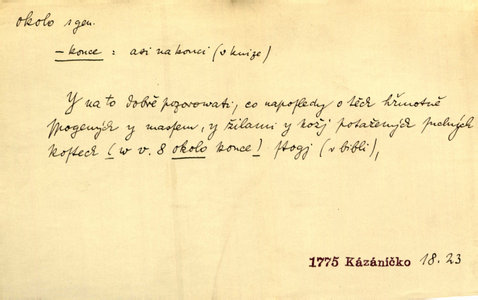 okolo s gen.
– konce : asi na konci (v knize)
Y na to dobře pozorowati, co naposledy o těch hřmotně
spogených y masem, y žilami y koží potažených suchých
kostech (w v. 8 okolo konce) stogj (v bibli),
1775 Kázáníčko 18.23